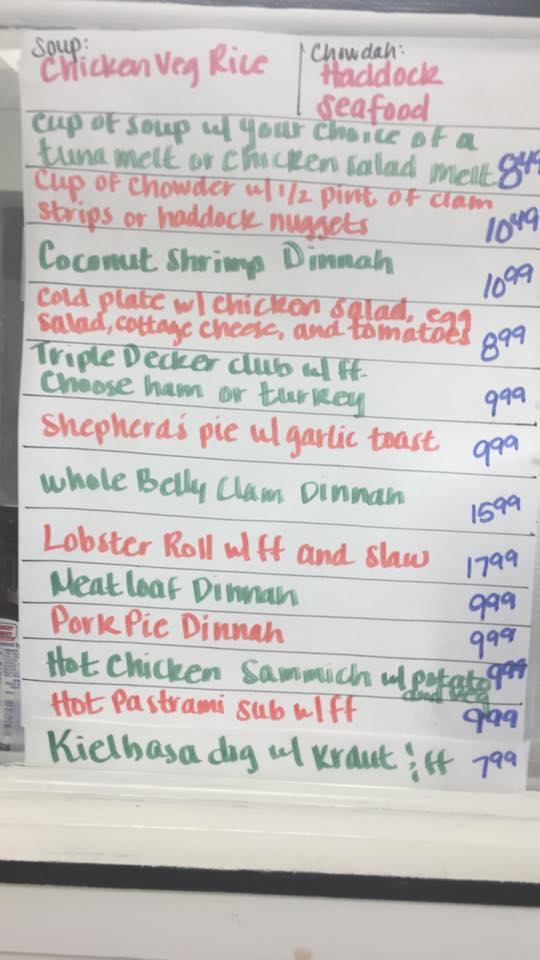 Soup:
Chicken Veg Rice
Chowdah:
Haddock
Seafood
Cup of soup w/ your choice of a
tuna melt or chicken salad melt 8.49
Cup of chowder w/ 1/2 pint of clam
strips or haddock nuggets 10.49
Coconut Shrimp Dinnah 10.99
Cold plate w/ chicken salad, egg
salad, cottage cheese, and tomatoes 8.99
Triple Decker club w/ ff-
Choose ham or turkey 9.99
Shepherd's pie w/ garlic toast 9.99
Whole Belly Clam Dinnah 15.99
Lobster Roll w/ ff and slaw 17.99
Meatloaf Dinnah 9.99
Pork Pie Dinnah 9.99
Hot Chicken Sammich w/ potato 9.99
and veg
Hot Pastrami sub w/ ff 9.99
Kielbasa dog w/ kraut & ff 7.99